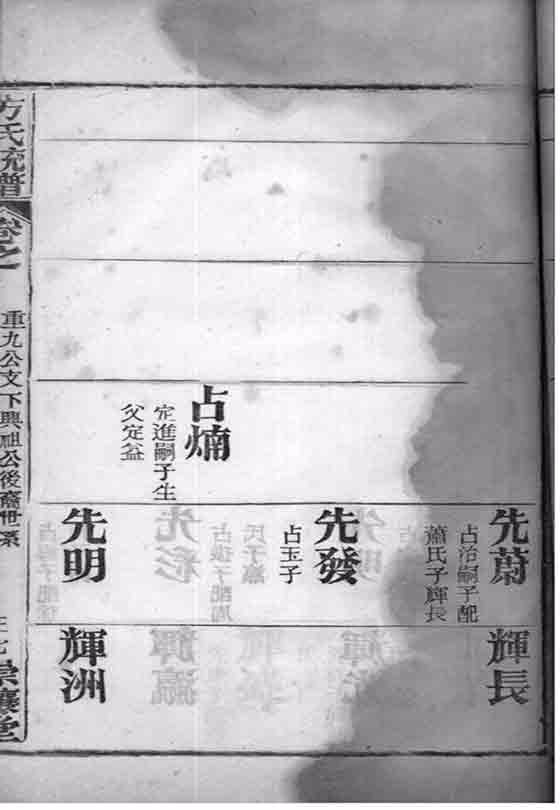 占煵
定進嗣子生
父定益
先蔚
占治嗣子配
蕭氏子輝長
先發
占玉子
先明
輝長
輝洲
方氏統譜
卷之
重九公文下興祖公後裔世系
崇讓堂